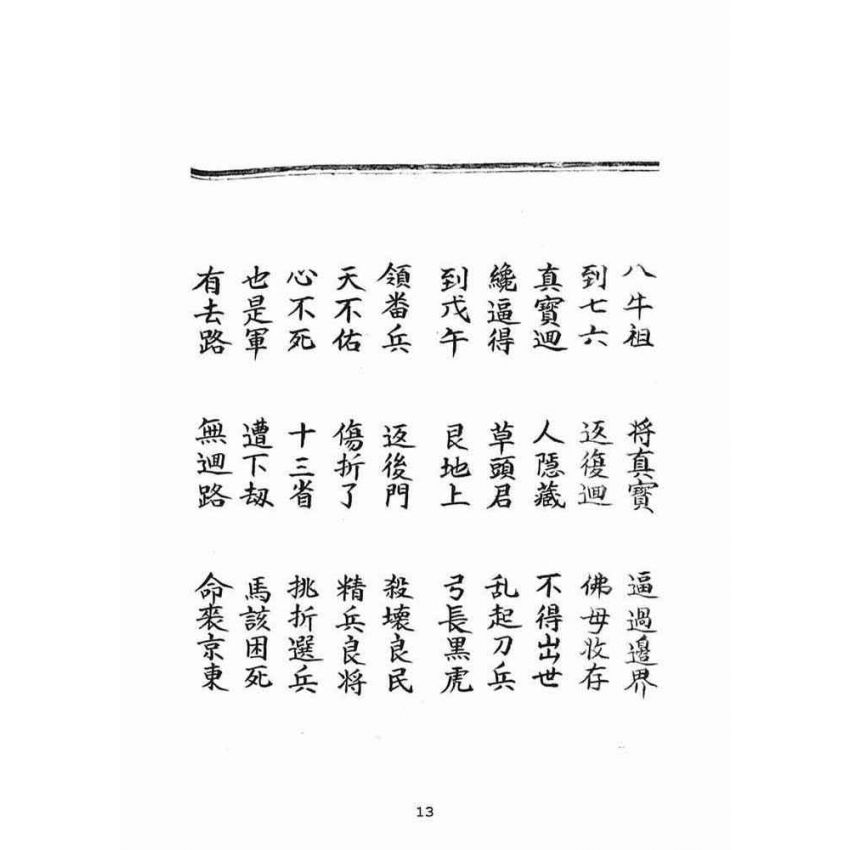 八牛祖 将真寶 逼過邊界
到七六 返復迴 佛母收存
真寶迴 人隱藏 不得出世
纔逼得 草頭君 乱起刀兵
到戊午 艮地上 弓長黑虎
領畨兵 返後門 殺壞良民
天不佑 傷折了 精兵良将
心不死 十三省 挑折選兵
也是軍 遭下刼 馬該困死
有去路 無迴路 命丧京東
13